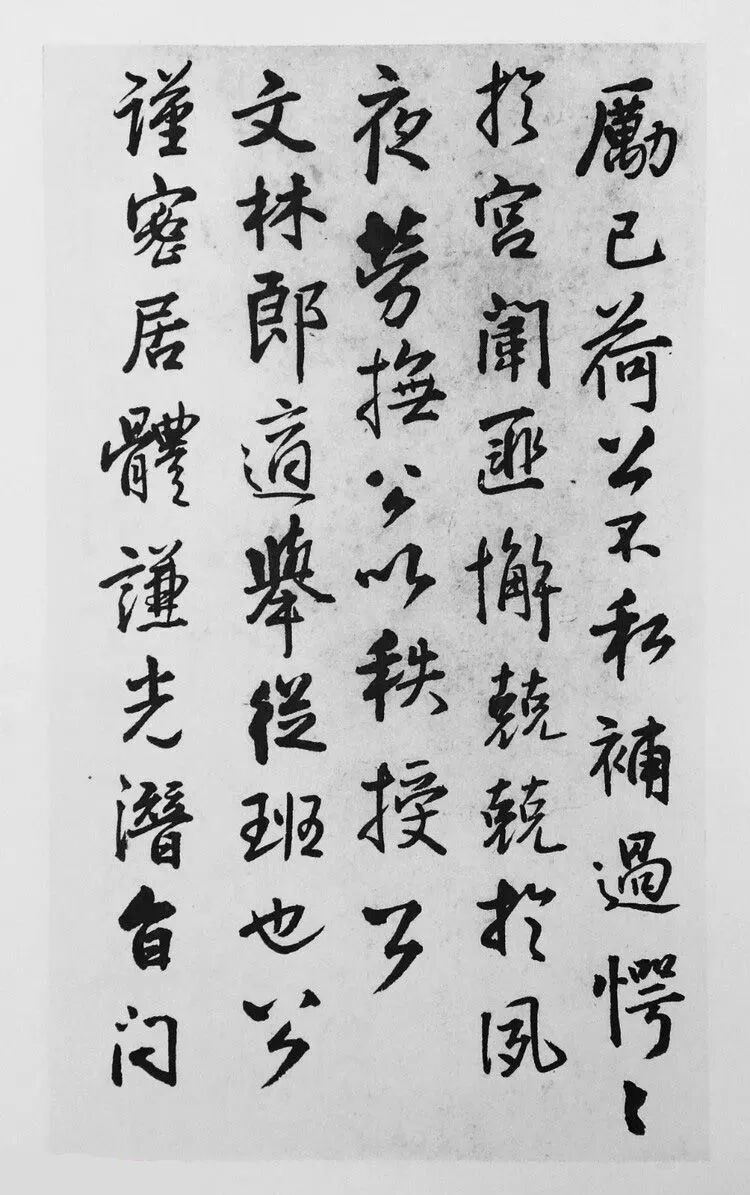 勵己荷公不私補過愕〻
於宮闈匪懈兢兢於夙
夜勞撫公以秩授公
文林郎適舉從班也公
謹密居體謙光潛旨闷